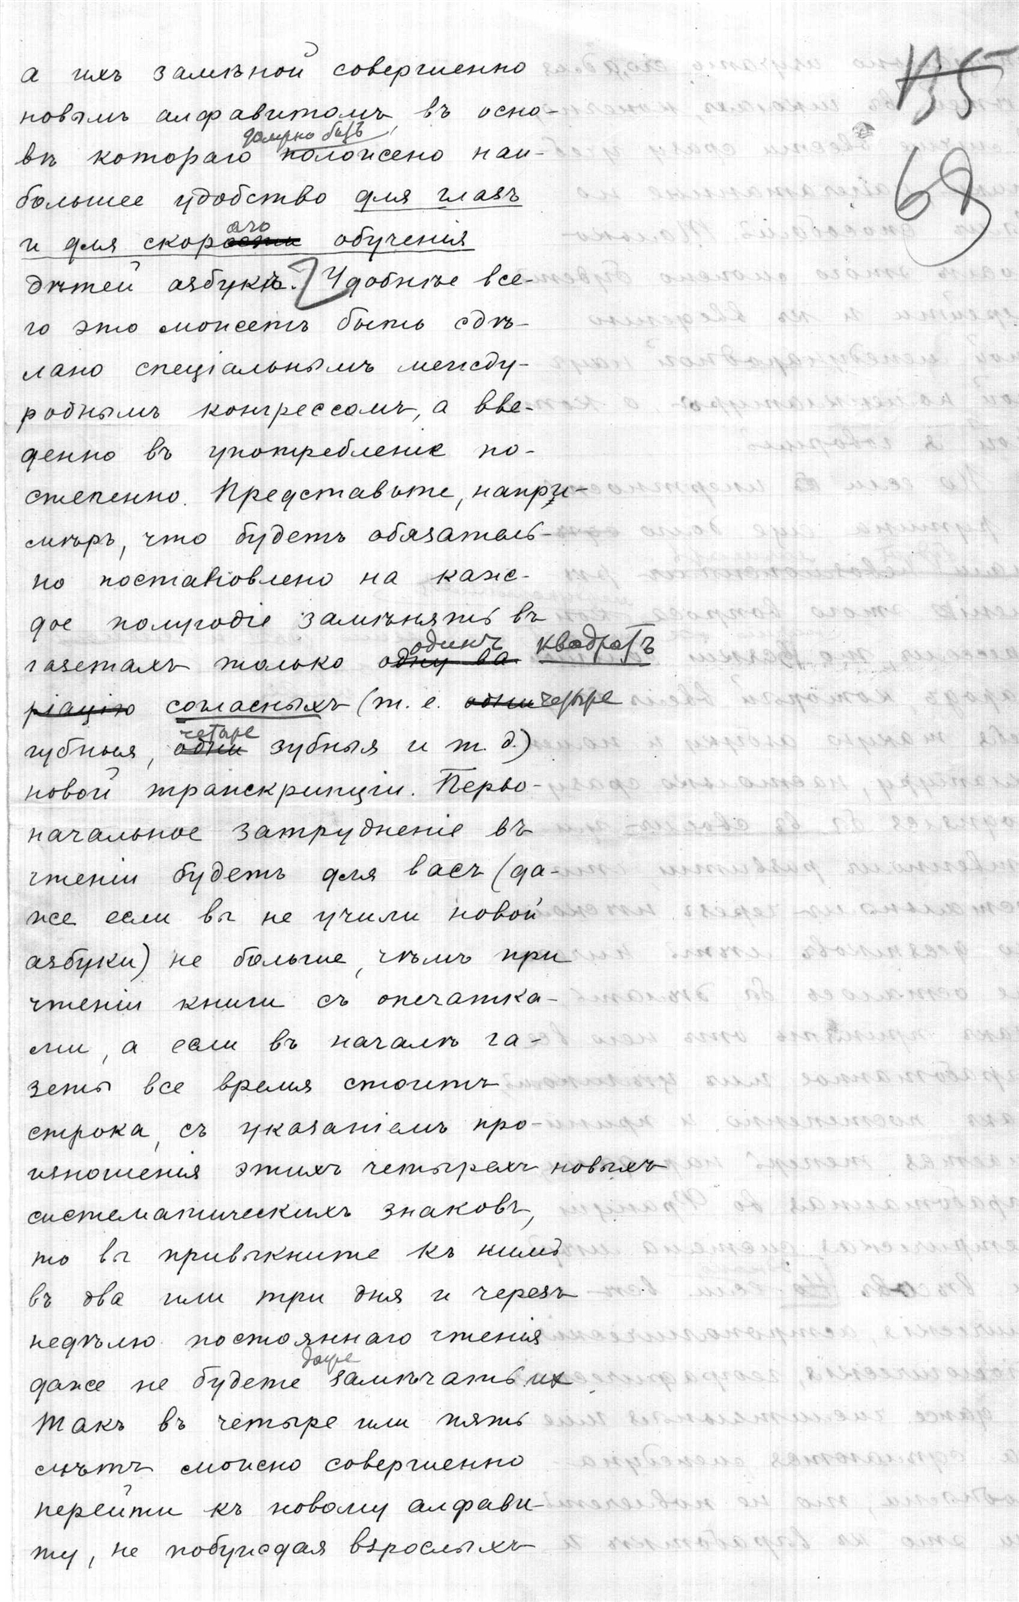 135
68
а ихъ замѣной совершенно
новымъ алфавитомъ въ осно-
должно быть
вѣ котораго положено наи-
большее удобство для глазъ
и для скораго обученія
дѣтей азбукѣ. Удобнѣе все-
го это можетъ быть сдѣ-
лано спеціальнымъ между-
роднымъ конгрессомъ, а вве-
денно въ употребленіе по-
степенно. Представьте, напри-
мѣръ, что будетъ обязатель-
но постановлено на каж-
дое полугодіе замѣнять въ
газетахъ только одну ва одинъ квадратъ
ріацію согласныхъ (т. е. одни четыре
губныя, одни четыре зубныя и т. д.)
новой транскрипціи. Перво-
начальное затрудненіе въ
чтеніи будетъ для васъ (да-
же если вы не учили новой
азбуки) не больше, чѣмъ при
чтеніи книги съ опечатка-
ми, а если въ началѣ га-
зеты все время стоитъ
строка, съ указаніемъ про-
изношенія этихъ четырехъ новыхъ
систематическихъ знаковъ,
то вы привыкните къ нимъ
въ два или три дня и черезъ
недѣлю постояннаго чтенія
даже не будете замѣчать их
Такъ въ четыре или пять
лѣтъ можно совершенно
перейти къ новому алфави-
ту, не побуждая взрослыхъ